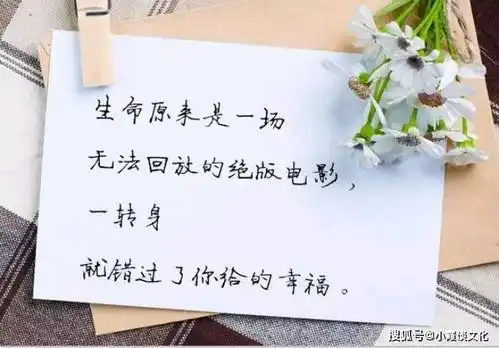 生命原来是一场
无法回放的绝版电影，
一转身
就错过了你给的幸福。
搜狐号@小霞谈文化